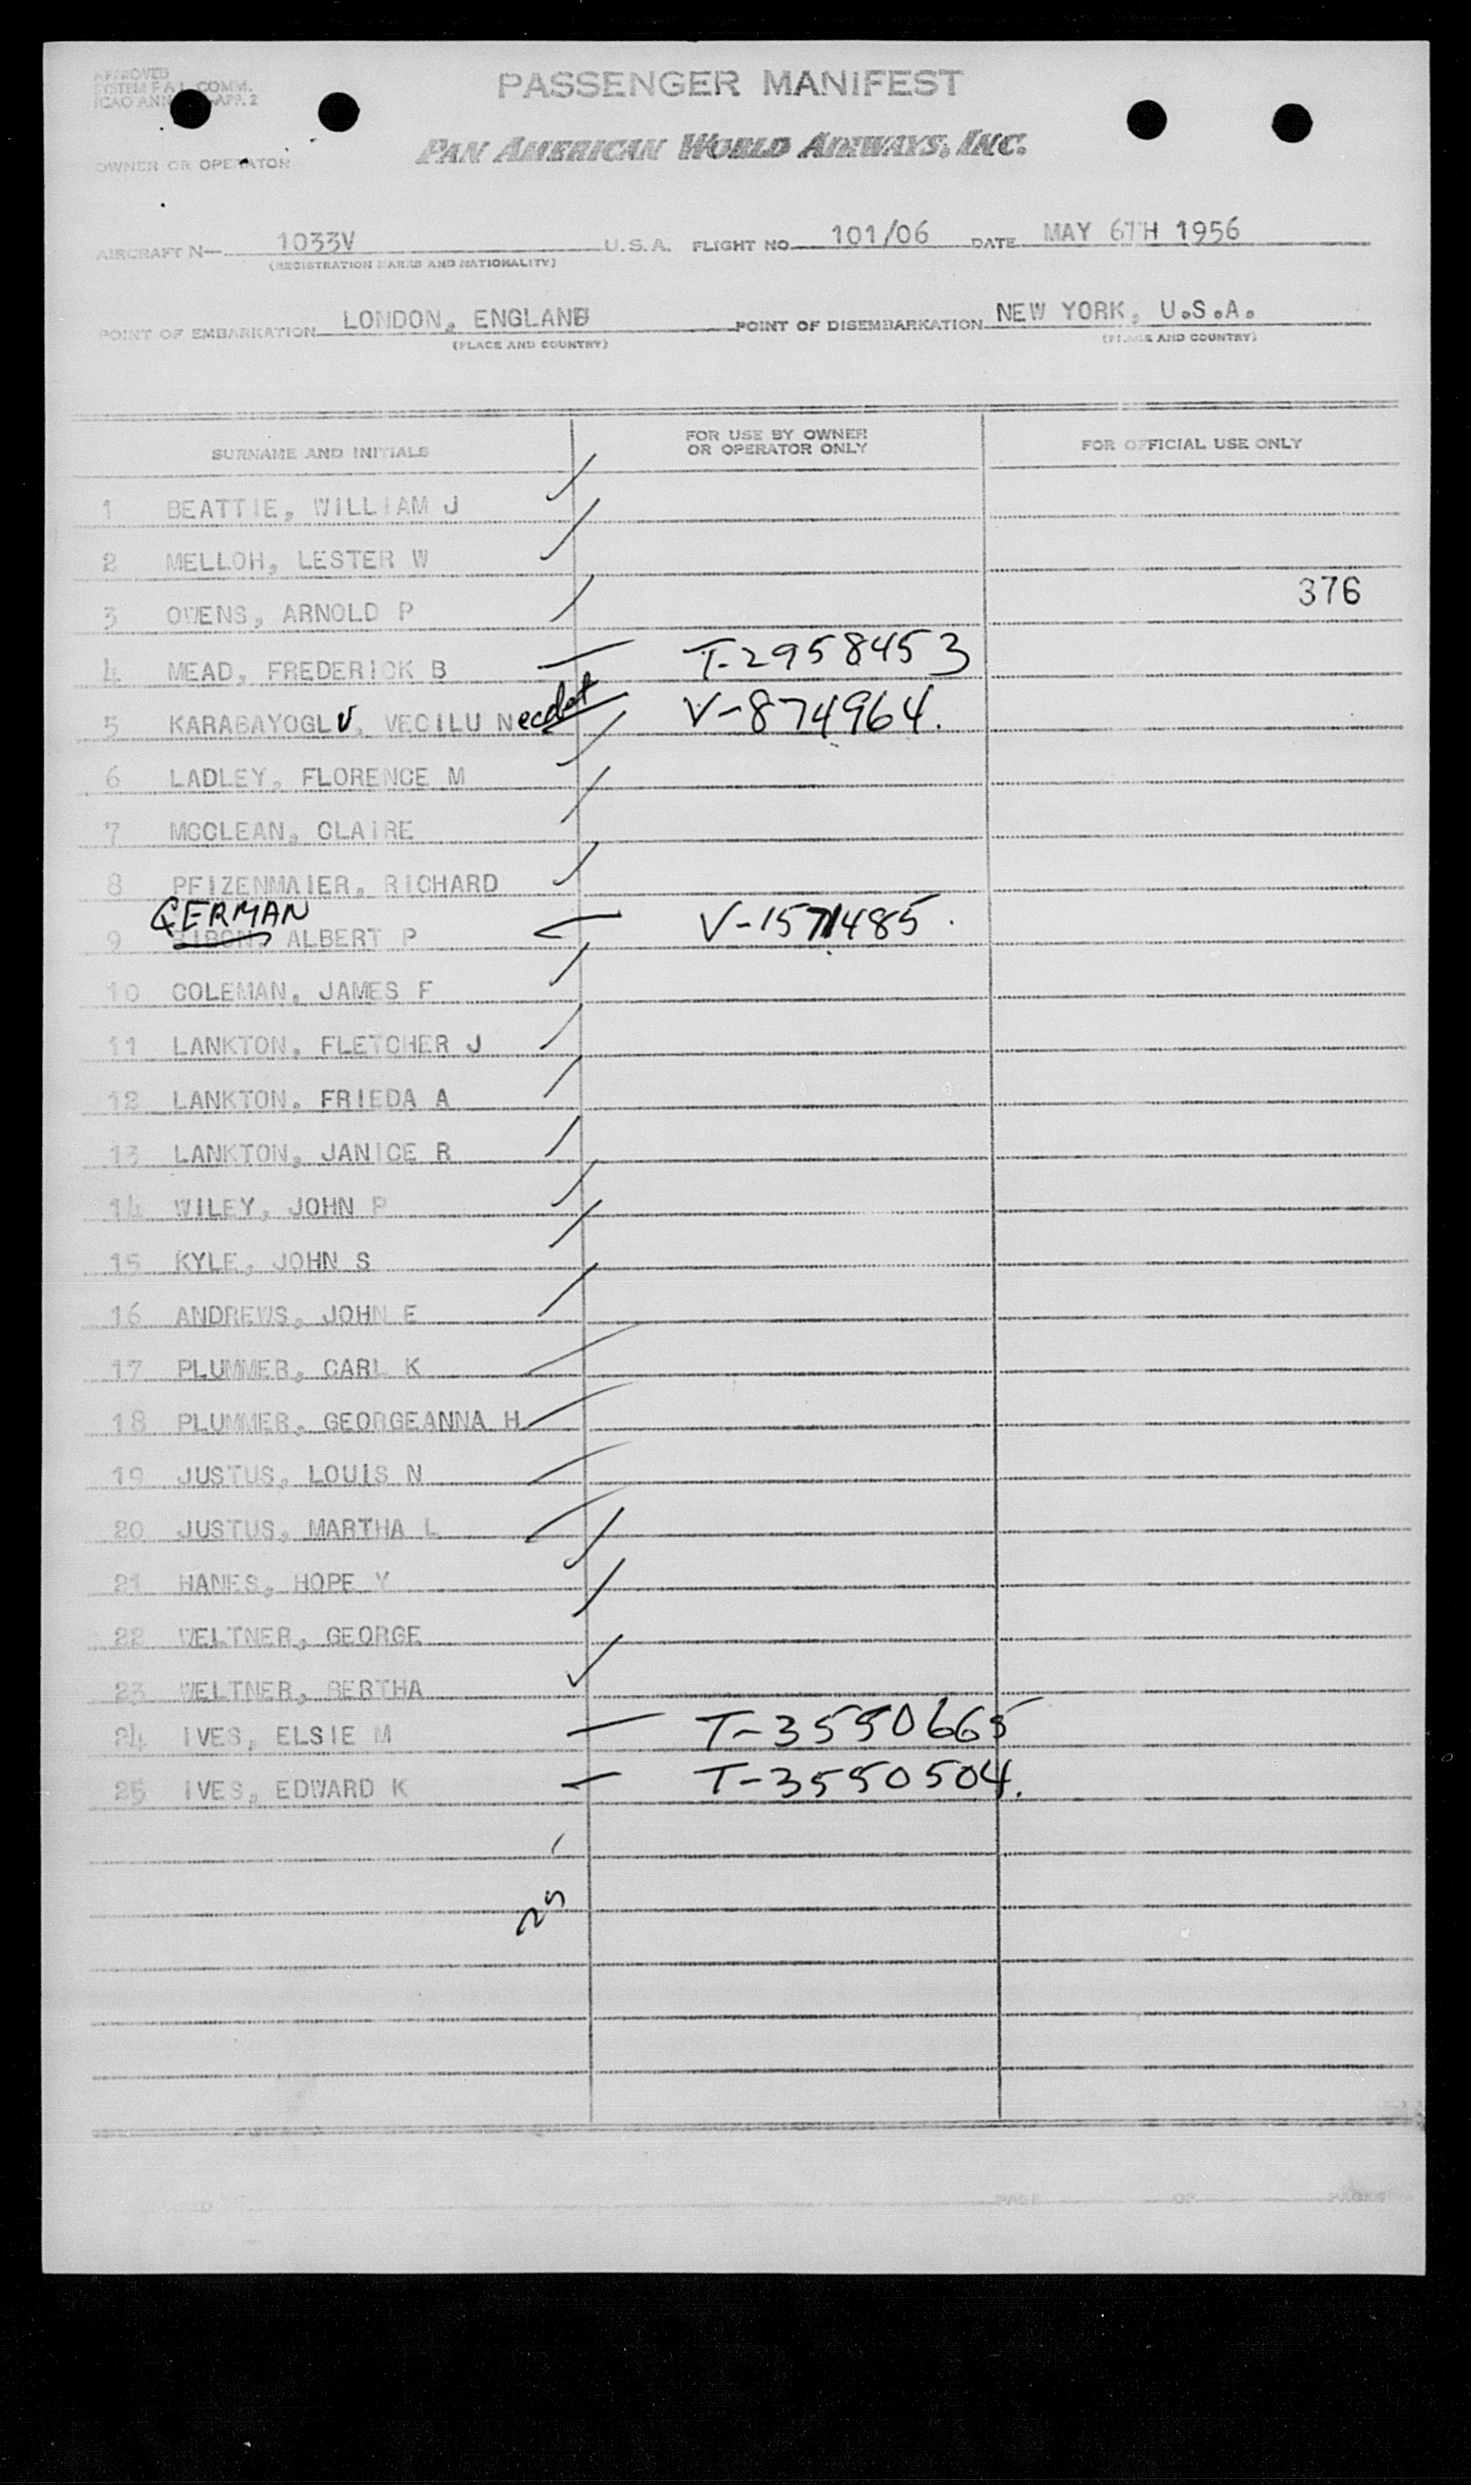 APPROVED
SYSTEM F A L COMM.
ICAO ANN APP. 2
PASSENGER MANIFEST
PAN AMERICAN WORLD AIRWAYS, INC.
OWNER OR OPERATOR
AIRCRAFT N— 1033V U.S.A. FLIGHT NO 101/06 DATE MAY 6TH 1956
(REGISTRATION MARKS AND NATIONALITY)
POINT OF EMBARKATION LONDON, ENGLAND POINT OF DISEMBARKATION NEW YORK, U.S.A.
(PLACE AND COUNTRY) (PLACE AND COUNTRY)
SURNAME AND INITIALS FOR USE BY OWNER OR OPERATOR ONLY FOR OFFICIAL USE ONLY
1 BEATTIE, WILLIAM J
2 MELLOH, LESTER W
376
3 OWENS, ARNOLD P
4 MEAD, FREDERICK B T-2958453
5 KARABAYOGLU, VECILU Necdet V-874964.
6 LADLEY, FLORENCE M
7 MCCLEAN, CLAIRE
8 PFIZENMAIER, RICHARD
GERMAN
9 ALBERT P V-1571485.
10 COLEMAN, JAMES F
11 LANKTON, FLETCHER J
12 LANKTON, FRIEDA A
13 LANKTON, JANICE R
14 WILEY, JOHN P
15 KYLE, JOHN S
16 ANDREWS, JOHN E
17 PLUMMER, CARL K
18 PLUMMER, GEORGEANNA H
19 JUSTUS, LOUIS N
20 JUSTUS, MARTHA L
21 HANES, HOPE Y
22 WELTNER, GEORGE
23 WELTNER, BERTHA
24 IVES, ELSIE M T-3550665
25 IVES, EDWARD K T-3550504.
25
PAGE OF PAGES